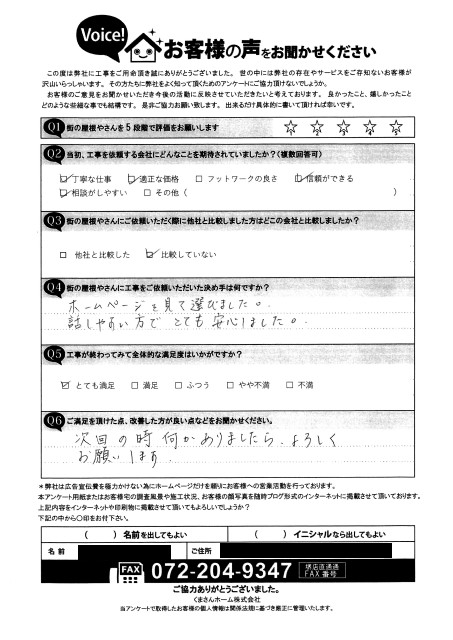 Voice!
お客様の声をお聞かせください
この度は弊社に工事をご用命頂き誠にありがとうございました。世の中には弊社の存在やサービスをご存知ないお客様が
沢山いらっしゃいます。その方たちに弊社をよく知って頂くためのアンケートにご協力頂けないでしょうか?
お客様のご意見をお聞かせいただき今後の活動に反映させていただきたいと考えております。良かったこと、嬉しかったこと
どのような些細な事でも結構です。是非ご協力お願い致します。出来るだけ具体的に書いて頂ければ幸いです。
Q1 街の屋根やさんを5段階で評価をお願いします
☆1 ☆2 ☆3 ☆4 ☆5
Q2 当初、工事を依頼する会社にどんなことを期待されていましたか?(複数回答可)
☑丁寧な仕事 ☑適正な価格 □フットワークの良さ ☑信頼ができる
☑相談がしやすい □その他( )
Q3 街の屋根やさんにご依頼いただく際に他社と比較しました方はどこの会社と比較しましたか?
□ 他社と比較した ☑ 比較していない
Q4 街の屋根やさんに工事をご依頼いただいた決め手は何ですか?
ホームページを見て選びました。
話しやすい方でとても安心しました。
Q5 工事が終わってみて全体的な満足度はいかがですか?
☑ とても満足 □ 満足 □ ふつう □ やや不満 □ 不満
Q6 ご満足を頂けた点、改善した方が良い点などをお聞かせください。
次回の時何かありましたら、よろしく
お願いします。
*弊社は広告宣伝費を極力かけない為にホームページだけを頼りにお客様への営業活動を行っております。
本アンケート用紙またはお客様宅の調査風景や施工状況、お客様の顔写真を随時ブログ形式のインターネットに掲載させて頂いております。
上記内容をインターネットや印刷物に掲載させて頂いてもよろしいでしょうか?
下記の中から〇印をお付下さい。
( )名前を出してもよい ( )イニシャルなら出してもよい
名前 ご住所
FAX 072-204-9347 堺店直通 FAX番号
ご協力ありがとうございました。
くまさんホーム株式会社
当アンケートで取得したお客様の個人情報は関係法規に基づき厳正に管理いたします。